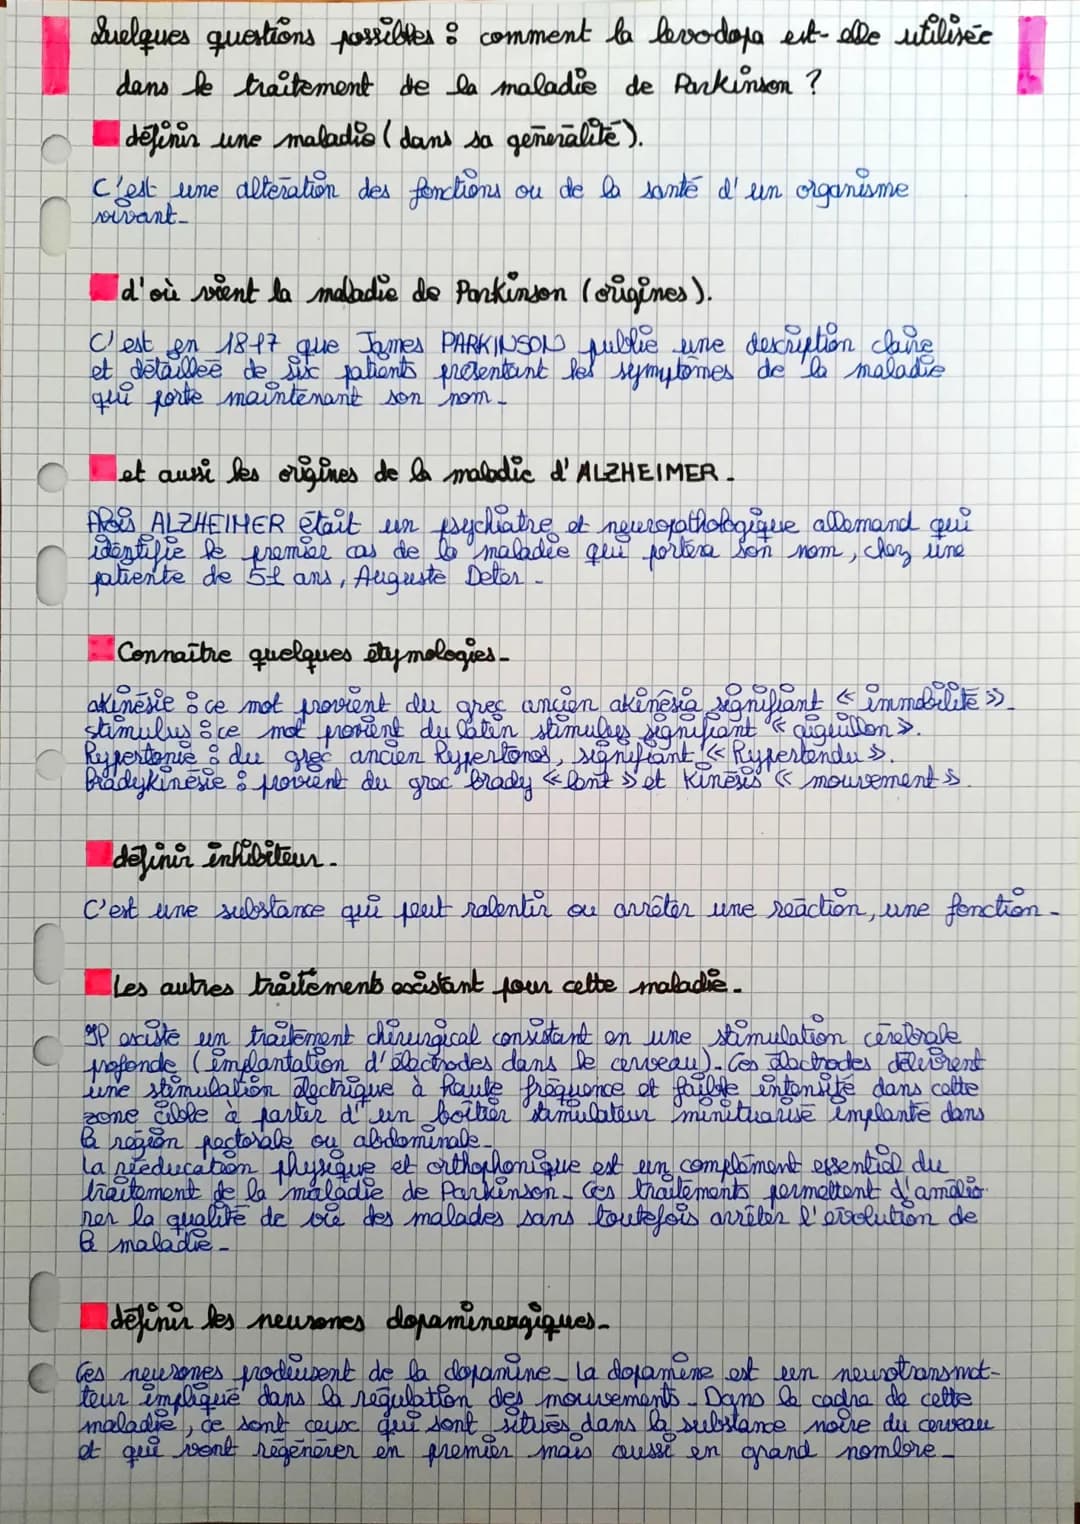 Quelques questions possibles : comment la levodopa est-elle utilisée
dans le traitement de la maladie de Parkinson ?
définir une maladie (dans sa généralité).
C'est une altération des fonctions ou de la santé d'un organisme
vivant.
d'où vient la maladie de Parkinson (origines).
C'est en 1817 que James PARKINSON publie une description claire
et détaillée de six patients présentant les symytômes de la maladie
qui porte maintenant son nom.
et aussi les origines de la maladie d'ALZHEIMER.
Aloïs ALZHEIMER était un psychiatre et neuropathologique allemand qui
identifie le premier cas de la maladie qui portera son nom, chez une
patiente de 51 ans, Auguste Deter.
Connaître quelques étymologies.
akinésie : ce mot provient du grec ancien akinêsia signifiant « immobilité ».
stimulus : ce mot provient du latin stimulus signifiant « aiguillon ».
hypertonie : du grec ancien hypertonos, signifiant « hypertendu ».
Bradykinésie : provient du grec brady « lent » et kinésis « mouvement ».
définir inhibiteur.
C'est une substance qui peut ralentir ou arrêter une réaction, une fonction.
Les autres traitements existant pour cette maladie.
Il existe un traitement chirurgical consistant en une stimulation cérébrale
profonde (implantation d'électrodes dans le cerveau). Ces électrodes délivrent
une stimulation électrique à haute fréquence et faible intensité dans cette
zone cible à partir d'un boîtier stimulateur minituarisé implanté dans
la région pectorale ou abdominale.
La rééducation physique et orthophonique est un complément essentiel du
traitement de la maladie de Parkinson. Ces traitements permettent d'amélio-
rer la qualité de vie des malades sans toutefois arrêter l'évolution de
la maladie.
définir les neurones dopaminergiques.
Ces neurones produisent de la dopamine. La dopamine est un neurotransmet-
teur impliqué dans la régulation des mouvements. Dans le cadre de cette
maladie, ce sont ceux qui sont situés dans la substance noire du cerveau
et qui vont régénérer en premier mais aussi en grand nombre.